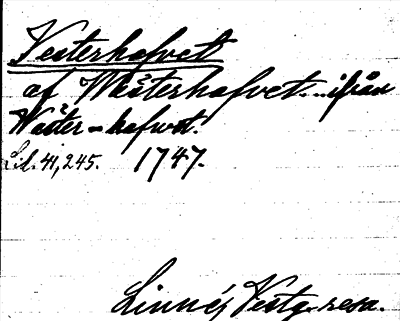 Vesterhafvet
af Wästerhafvet... ifrån
Wäster-hafwet.
Sid. 41, 245. 1747.
Linnés Vestg. resa.